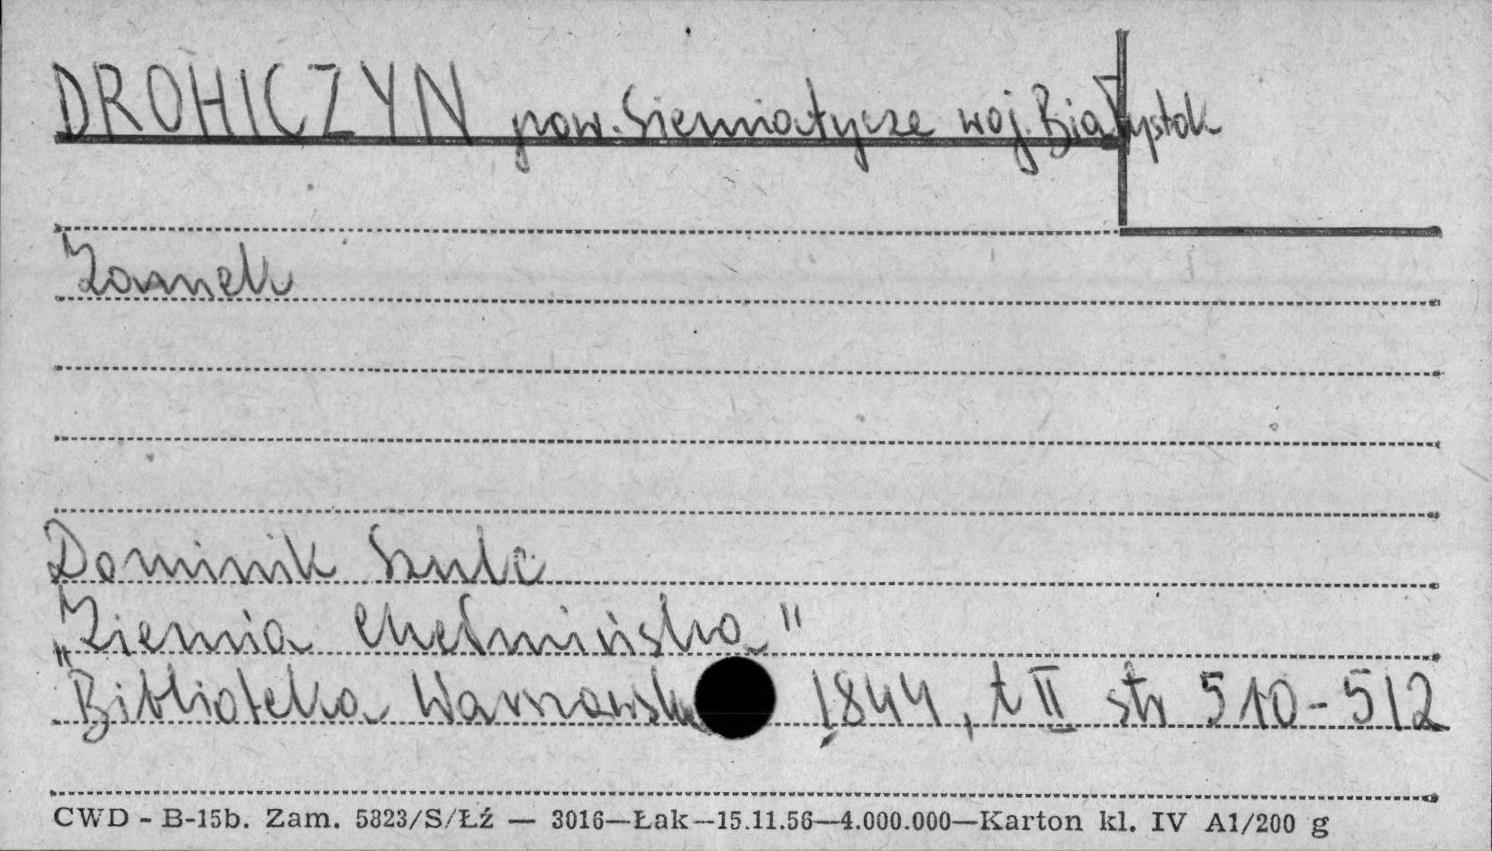 DROHICZYN pow. Siemiatycze woj. Białystok
Zamek
Dominik Szulc
„Ziemia Chełmińska"
Biblioteka Warszawska 1844, t II str 510-512
CWD - B-15b. Zam. 5823/S/Łź — 3016—Łak—15.11.56—4.000.000—Karton kl. IV A1/200 g